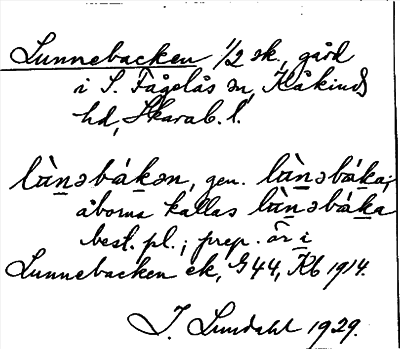 Lunnebacken 1/2 sk., gård
i S. Fågelås sn, Kåkinds
hd, Skarab. l.
lùn̲əbák̲ən, gen. lùn̲əbák̲a;
åborna kallas lùn̲əbák̲a
best. pl.; prep. är i
Lunnebacken ek, G 44, Kb 1914.
J. Lundahl 1929.